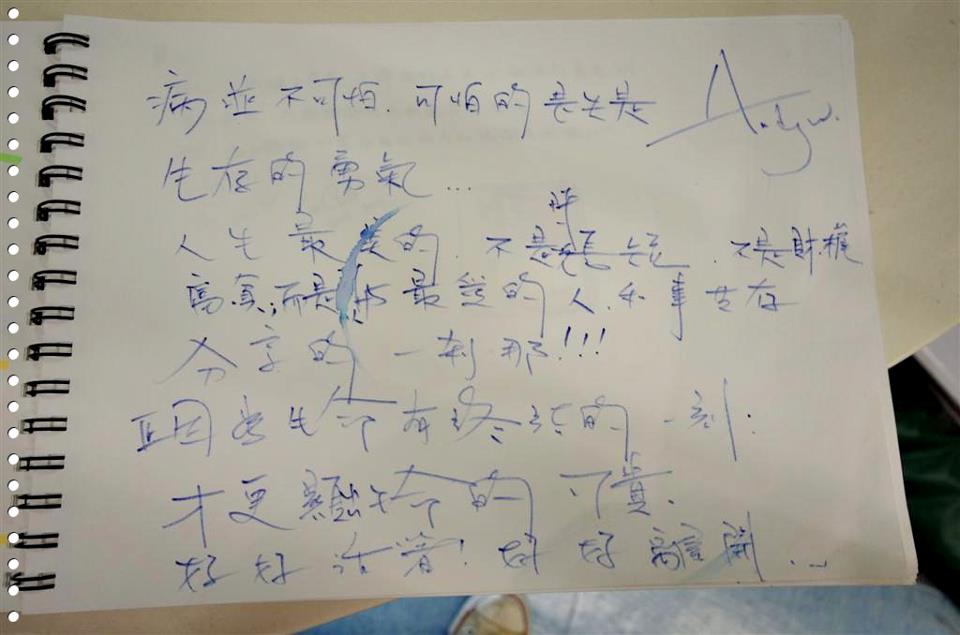 病並不可怕．可怕的是失是
Andy w.
生存的勇氣...
人生最美的．不是．不是財權
高真；而是 最 的人．和事共存
分享的一剎那!!!
正因為生命有終결的一刻：
才更 命的可貴．
好好活著！好好離開...